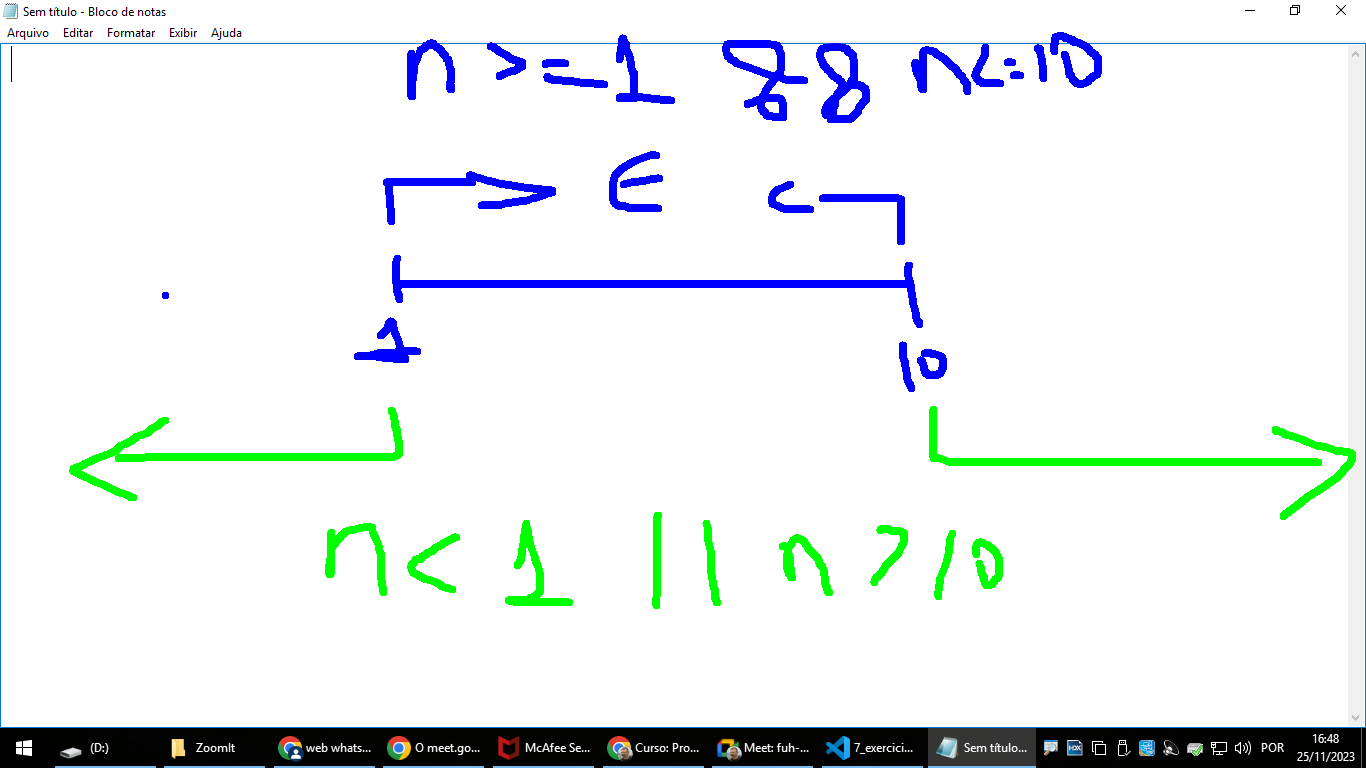 Sem título - Bloco de notas
Arquivo Editar Formatar Exibir Ajuda
n >= 1 && n<=10
E
1 10
n < 1 || n > 10
(D:) ZoomIt web whats... O meet.go... McAfee Se... Curso: Pro... Meet: fuh-... 7_exercici... Sem título... POR 16:48
25/11/2023